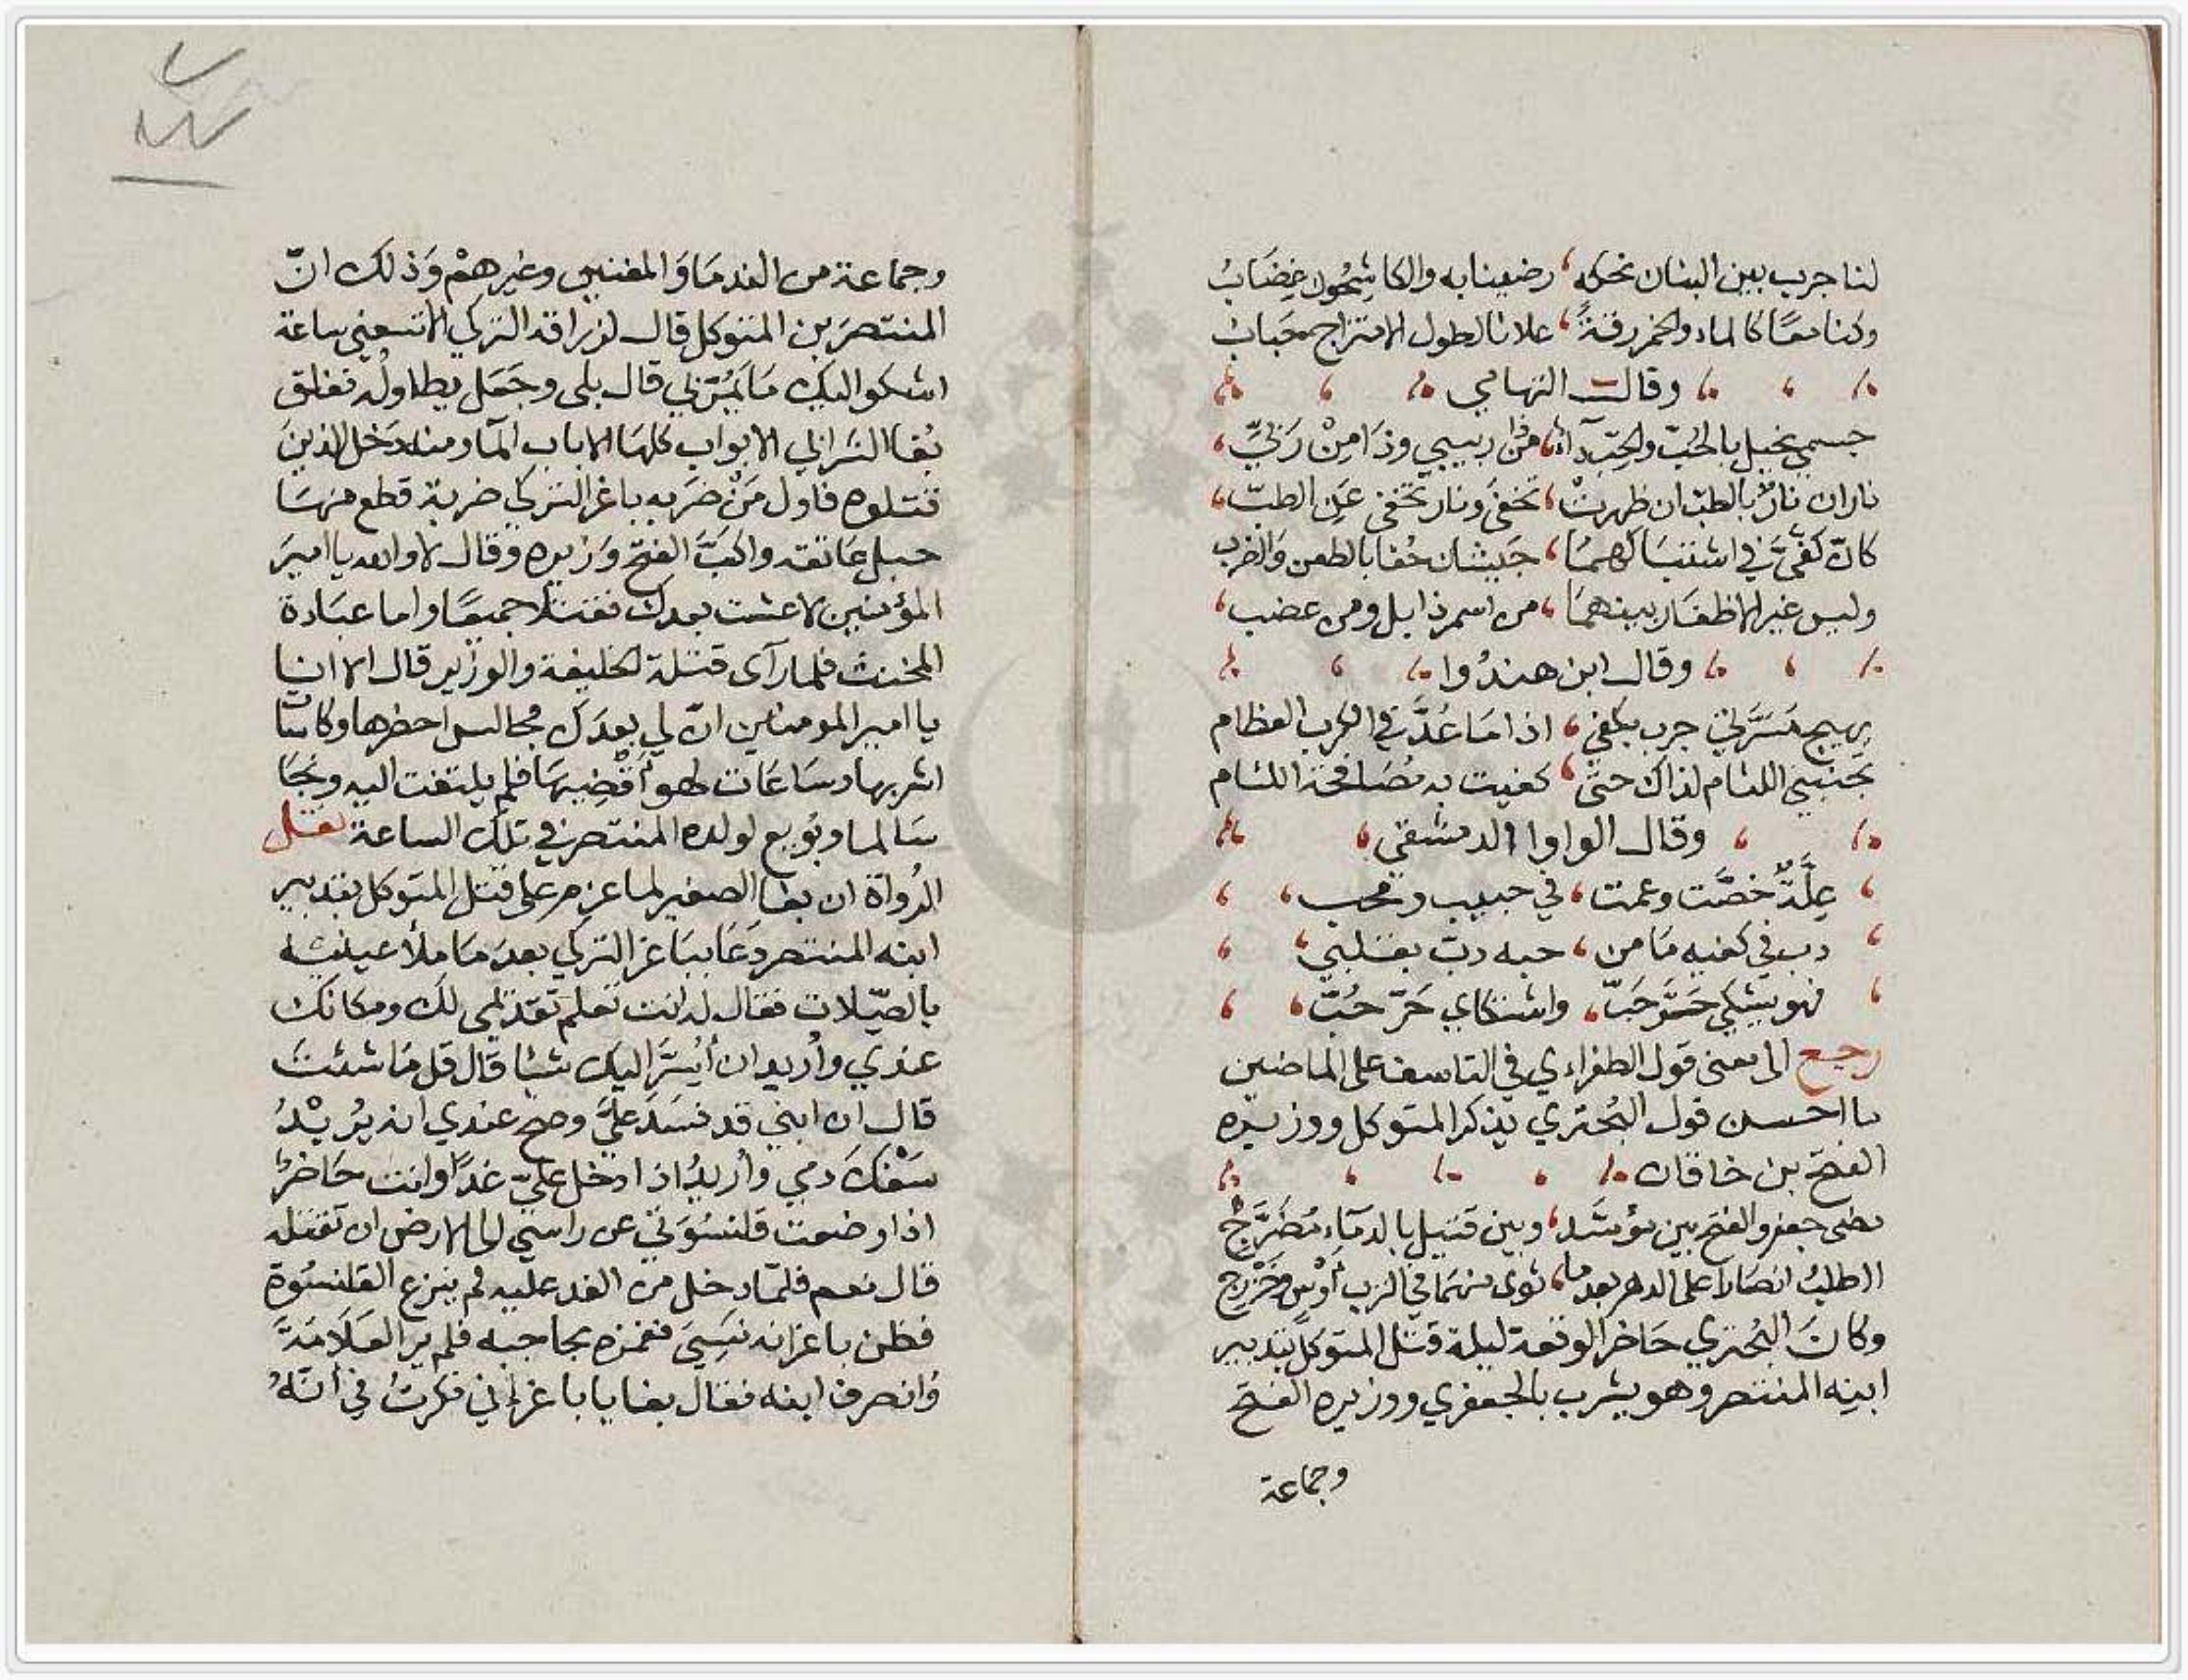 لنا جرب بين البنان نحكه، رضينا به والكاشحون غضاب
وكنا معا كالماء والخمر رقة، علانا لطول الامتزاج حباب
وقال التهامي
جسمي نحيل بالحب والحب آه، من ذا ربيبي وذا من ربي،
ناران نار بالطب ان ظهرت، تخفى ونار تخفى عن الطب،
كان كفي في اشتباكهما، جيشان خفا بالطعن والضرب
وليس غير الاظفار بينهما، من اسمر ذابل ومن عضب،
وقال ابن هندوا
يهيج مسرتي جرب بكفي، اذا ما عد في الكرب العظام
تجنبني اللئام لذاك حتى، كفيت به مصافحة اللئام
وقال الواوا الدمشقي،
علة خصت وعمت، في حبيب ومحب،
دب في كفيه ما من، حبه دب بقلبي،
فهو يشكي حر حب، واشتكاي حر حب،
رجع الى معنى قول الطغراءي في التاسف على الماضين
ما احسن قول البحتري يذكر المتوكل ووزيره
الفتح بن خاقان
مضى جعفر والفتح بين موسد، وبين قتيل بالدماء مضرج
ااطلب انصارا على الدهر بعدما، ثوى منهما في الترب اوس وخزرج
وكان البحتري حاضر الوقعة ليلة قتل المتوكل بتدبير
ابنه المنتصر وهو يشرب بالجعفري ووزيره الفتح
وجماعة
وجماعة من الندما والمغنيين وغيرهم وذلك انّ
المنتصر بن المتوكل قال لزرافة التركي الا تسعني ساعة
اشكو اليك ما يمر بي قال بلى وجعل يطاوله فغلق
بغا الشرابي الابواب كلها الا باب الما ومنه دخل الذين
قتلوه فاول من ضربه باغر التركي ضربة قطع منها
حبل عاتقه واكب الفتح وزيره وقال لا والله يا امير
المؤمنين لا عشت بعدك فقتلا جميعا واما عبادة
المخنث فلما رآى قتلة الخليفة والوزير قال الا انا
يا امير المومنين ان لي بعدك مجالس احضرها وكاسات
اشربها وساعات لهو أقضيها فلم يلتفت اليه ونجا
سالما وبويع لولده المنتصر في تلك الساعة نقل
الرواة ان بغا الصغير لما عزم على قتل المتوكل بتدبير
ابنه المنتصر دعا بباغر التركي بعد ما ملأ عينه
بالصّلات فقال له انت تعلم تقديمي لك ومكانك
عندي وأريد ان أيسر اليك شيا قال قل ما شئت
قال ان ابني قد فسد عليّ وصح عندي انه يريد
سفك دمي وأريد اذا دخل عليّ غداً وانت حاضر
اذا وضعت قلنسوتي عن راسي الى الارض ان تقتله
قال نعم فلمّا دخل من الغد عليه لم ينزع القلنسوة
فظن باغر انه نسي فغمزه بحاجبه فلم ير العلامة
وانصرف ابنه فقال بغا يا باغر اني فكرت في أنه